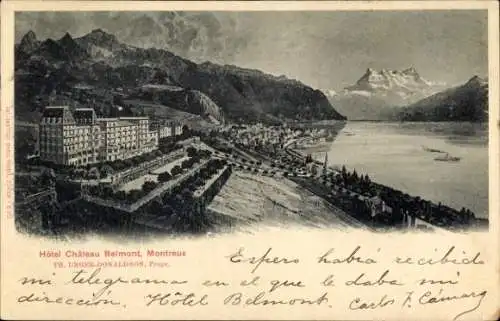 Hôtel Château Belmont, Montreux
TH. UNGER-DONALDSON, Propr.
Espero habrá recibido
mi telegrama en el que le daba mi
dirección. Hôtel Belmont. Carlos F. Cámara